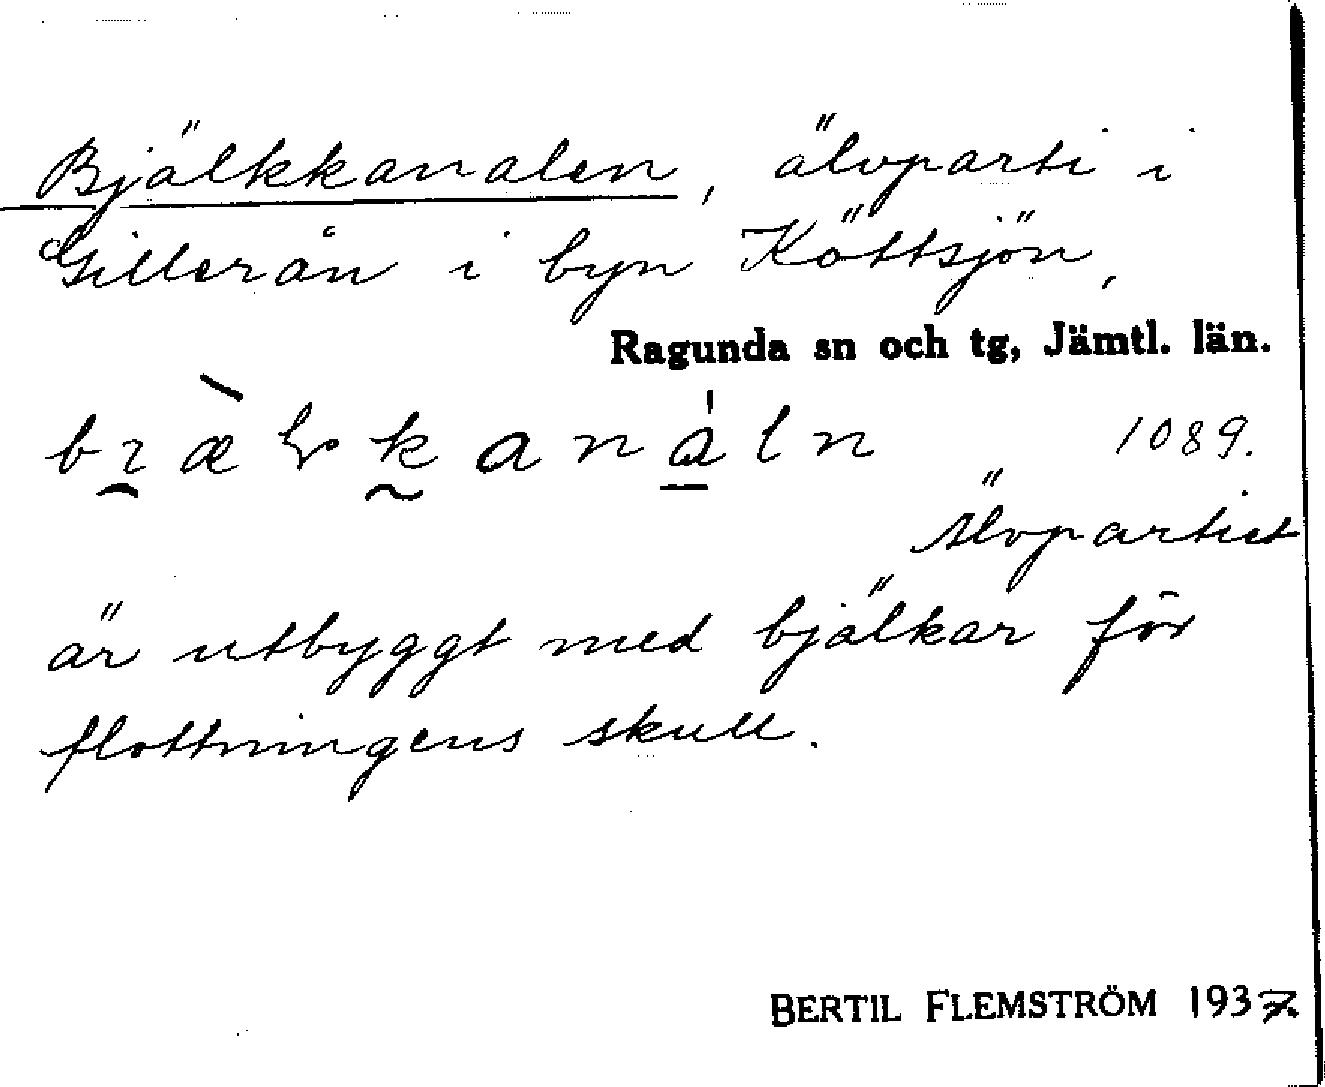 Bjälkkanalen, älvparti i
Gillerån i byn Köttsjön,
Ragunda sn och tg, Jämtl. län.
1089.
Älvpartiet
är utbyggt med bjälkar för
flottningens skull.
BERTIL FLEMSTRÖM 1937.